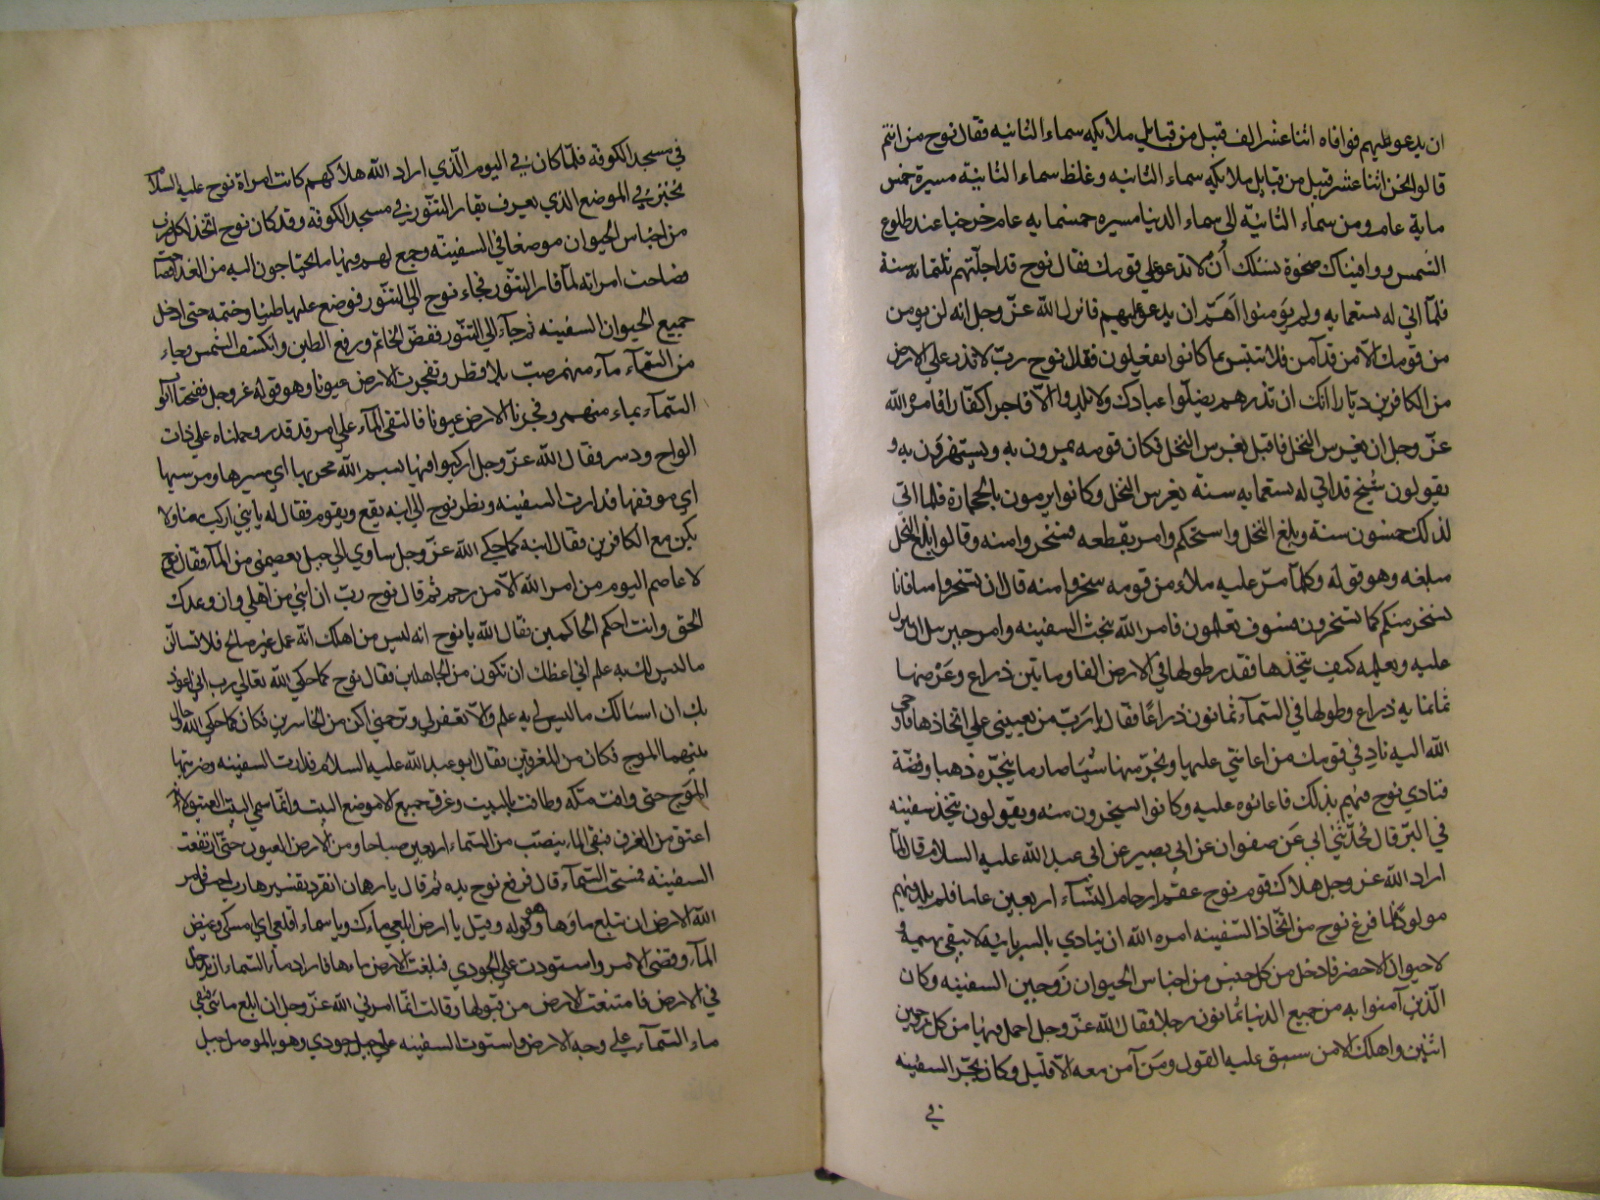 ان يدعو عليهم فوافاه اثنا عشر الف قبيل من قبايل ملائكه سماء الثانيه فقال نوح من انتم
قالوا نحن اثنا عشر قبيل من قبايل ملائكه سماء الثانيه وغلظ سماء الثانيّة مسيرة خمس
ماية عام ومن سماء الثانيّة الى سماء الدنيا مسيره خمسمايه عام خرجنا عند طلوع
الشمس ووافيناك صحوة نسئلك أن لا تدعو على قومك فقال نوح قد اجلّتهم ثلثمايه سنة
فلمّا اتى له ستعمايه ولم يؤمنوا اهمّ ان يدعو عليهم فانزل الله عزّ وجل انه لن يومن
من قومك الّا من قد آمن فلا تبتئس بما كانوا يفعلون فقال نوح ربّ لا تذر على الارض
من الكافرين ديّارا انك ان تذرهم يضلّوا عبادك ولا يلدوا الّا فاجرا كفّارا فامره الله
عزّ وجل ان يغرس النخل فاقبل يغرس النخل فكان قومه يمرون به ويستهزؤن به و
يقولون شيخ قد اتى له ستعمايه سنة يغرس النخل وكانوا يرمون بالحجارة فلما اتى
لذلك خمسون سنة وبلغ النخل واستحكم وامر بقطعه فسخروا منه وقالوا بلغ النخل
مبلغه وهو قوله وكلّما مرّ عليه ملاء من قومه سخروا منه قال ان تسخروا منا فانا
نسخر منكم كما تسخرون فسوف تعلمون فامر الله بنجث السفينه وامر جبرئيل ان ينزل
عليه ويعلمه كيف يتخذها فقدر طولها في الارض الفا وماتين ذراع وعرضها
ثمانمايه ذراع وطولها في السمآء ثمانون ذراعًا فقال يا ربّ من يعينني على اتخاذها فاوحى
الله اليه ناد في قومك من اعانني عليها ونجر منها شيئا صار ما ينجّره ذهبا وفضّة
فنادى نوح فيهم بذلك فاعانوه عليه وكانوا يسخرون منه ويقولون يتخذ سفينه
في البر قال فحدّثني ابي عن صفوان عن ابي بصير عن ابى عبد الله عليه السلام قال لمّا
اراد الله عز وجل هلاك قوم نوح عقم ارحام النسآء اربعين عاما فلم يلد فيهم
مولود فلما فرغ نوح من اتّخاذ السّفينه امره الله ان ينادي بالسريانيه لا تبقى بهيمة و
لا حيوان الا حضر فادخل من كل جنس من اجناس الحيوان زوجين السفينه وكان
الّذين آمنوا به من جميع الدنيا ثمانون رجلا فقال الله عزّ وجل احمل فيها من كل زوجين
اثنين واهلك الا من سبق عليه القول ومن آمن معه الّا قليل وكان نجر السفينه
في
في مسجد الكوفة فلمّا كان في اليوم الّذي اراد الله هلاكهم كانت امراة نوح عليه السلام
تخبز في الموضع الذي يعرف بفار التنّور في مسجد الكوفة وقد كان نوح اتخذ لكل ضرب
من اجناس الحيوان موضعا في السفينه وجمع لهم فيها ما يحتاجون اليه من الغذا
فصاحت امراته لمّا فار التنّور فجاء نوح الى التنّور فوضع عليها طينا وختمه حتى ادخل
جميع الحيوان السفينه ثم جآء الى التنّور ففضّ الخاتم ورفع الطين وانكسف الشمس وجاء
من السّمآء مآء منهمر صبّ بلا قطر وتفجرت الارض عيونا وهو قوله عز وجل ففتحنا ابواب
السّمآء بماء منهمر وفجرنا الارض عيونا فالتقى المآء على امر قد قدر وحملناه على ذات
الواح ودسر فقال الله عزّ وجل اركبوا فيها بسم الله مجريها اي مسيرها ومرسيها
اي موقفها فدارت السفينه ونظر نوح الى ابنه يقع ويقوم فقال له يا بني اركب معنا ولا
تكن مع الكافرين فقال ابنه كما حكى الله عزّ وجل ساوي الى جبل يعصمني من المآء فقال نوح
لا عاصم اليوم من امر الله الّا من رحم ثم قال نوح ربّ ان ابني من اهلي وان وعدك
الحق وانت احكم الحاكمين فقال الله يا نوح انه ليس من اهلك انّه عمل غير صالح فلا تسالن
ما ليس لك به علم اني اعظك ان تكون من الجاهلين فقال نوح كما حكى الله تعالى رب اني اعوذ
بك ان اسئالك ما ليس لي به علم والّا تغفر لي وترحمني اكن من الخاسرين فكان كما حكى الله وحال
بينهما الموج فكان من المغرقين فقال ابو عبد الله عليه السلام فدارت السفينه وضربتها
الموج حتى وافت مكّه وطافت بالبيت وغرق جميع الا موضع البيت وانّما سمي البيت العتيق لانه
اعتق من الغرق فبقى الماء ينصبّ من السّماء اربعين صباحا ومن الارض العيون حتّى ارتفعت
السفينه فمسحت السّمآء قال فرفع نوح يده ثم قال يا رهمان اتقرد تفسيرها رب احسن فامر
الله الارض ان تبلع ماؤها وهو قوله وقيل يا ارض ابلعي ماءك ويا سماء اقلعى اي امسكى وغيض
المآء وقضى الامر واستوت على الجودي فبلعت الارض ماءها فاراد ماء السّماء ان يدخل
في الارض فامتنعت الارض من قبولها وقالت انّما امرني الله عزّ وجل ان ابلع مائي فبقى
ماء السّمآء على وجه الارض واستوت السفينه على جبل جودي وهو بالموصل جبل